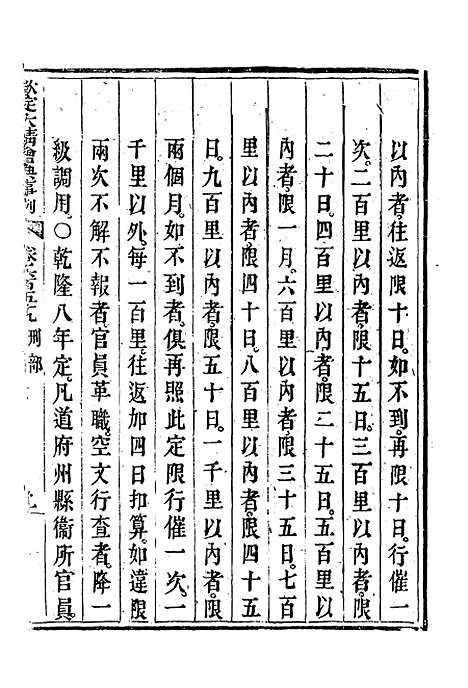 以內者往返限十日如不到再限十日行催一
次二百里以內者限十五日三百里以內者限
二十日四百里以內者限二十五日五百里以
內者限一月六百里以內者限三十五日七百
里以內者限四十日八百里以內者限四十五
日九百里以內者限五十日一千里以內者限
兩個月如不到者俱再照此定限行催一次一
千里以外每一百里往返加四日扣算如違限
兩次不解不報者官員革職空文行查者降一
級調用〇乾隆八年定凡道府州縣衞所官員
欽定大清會典事例 刑部